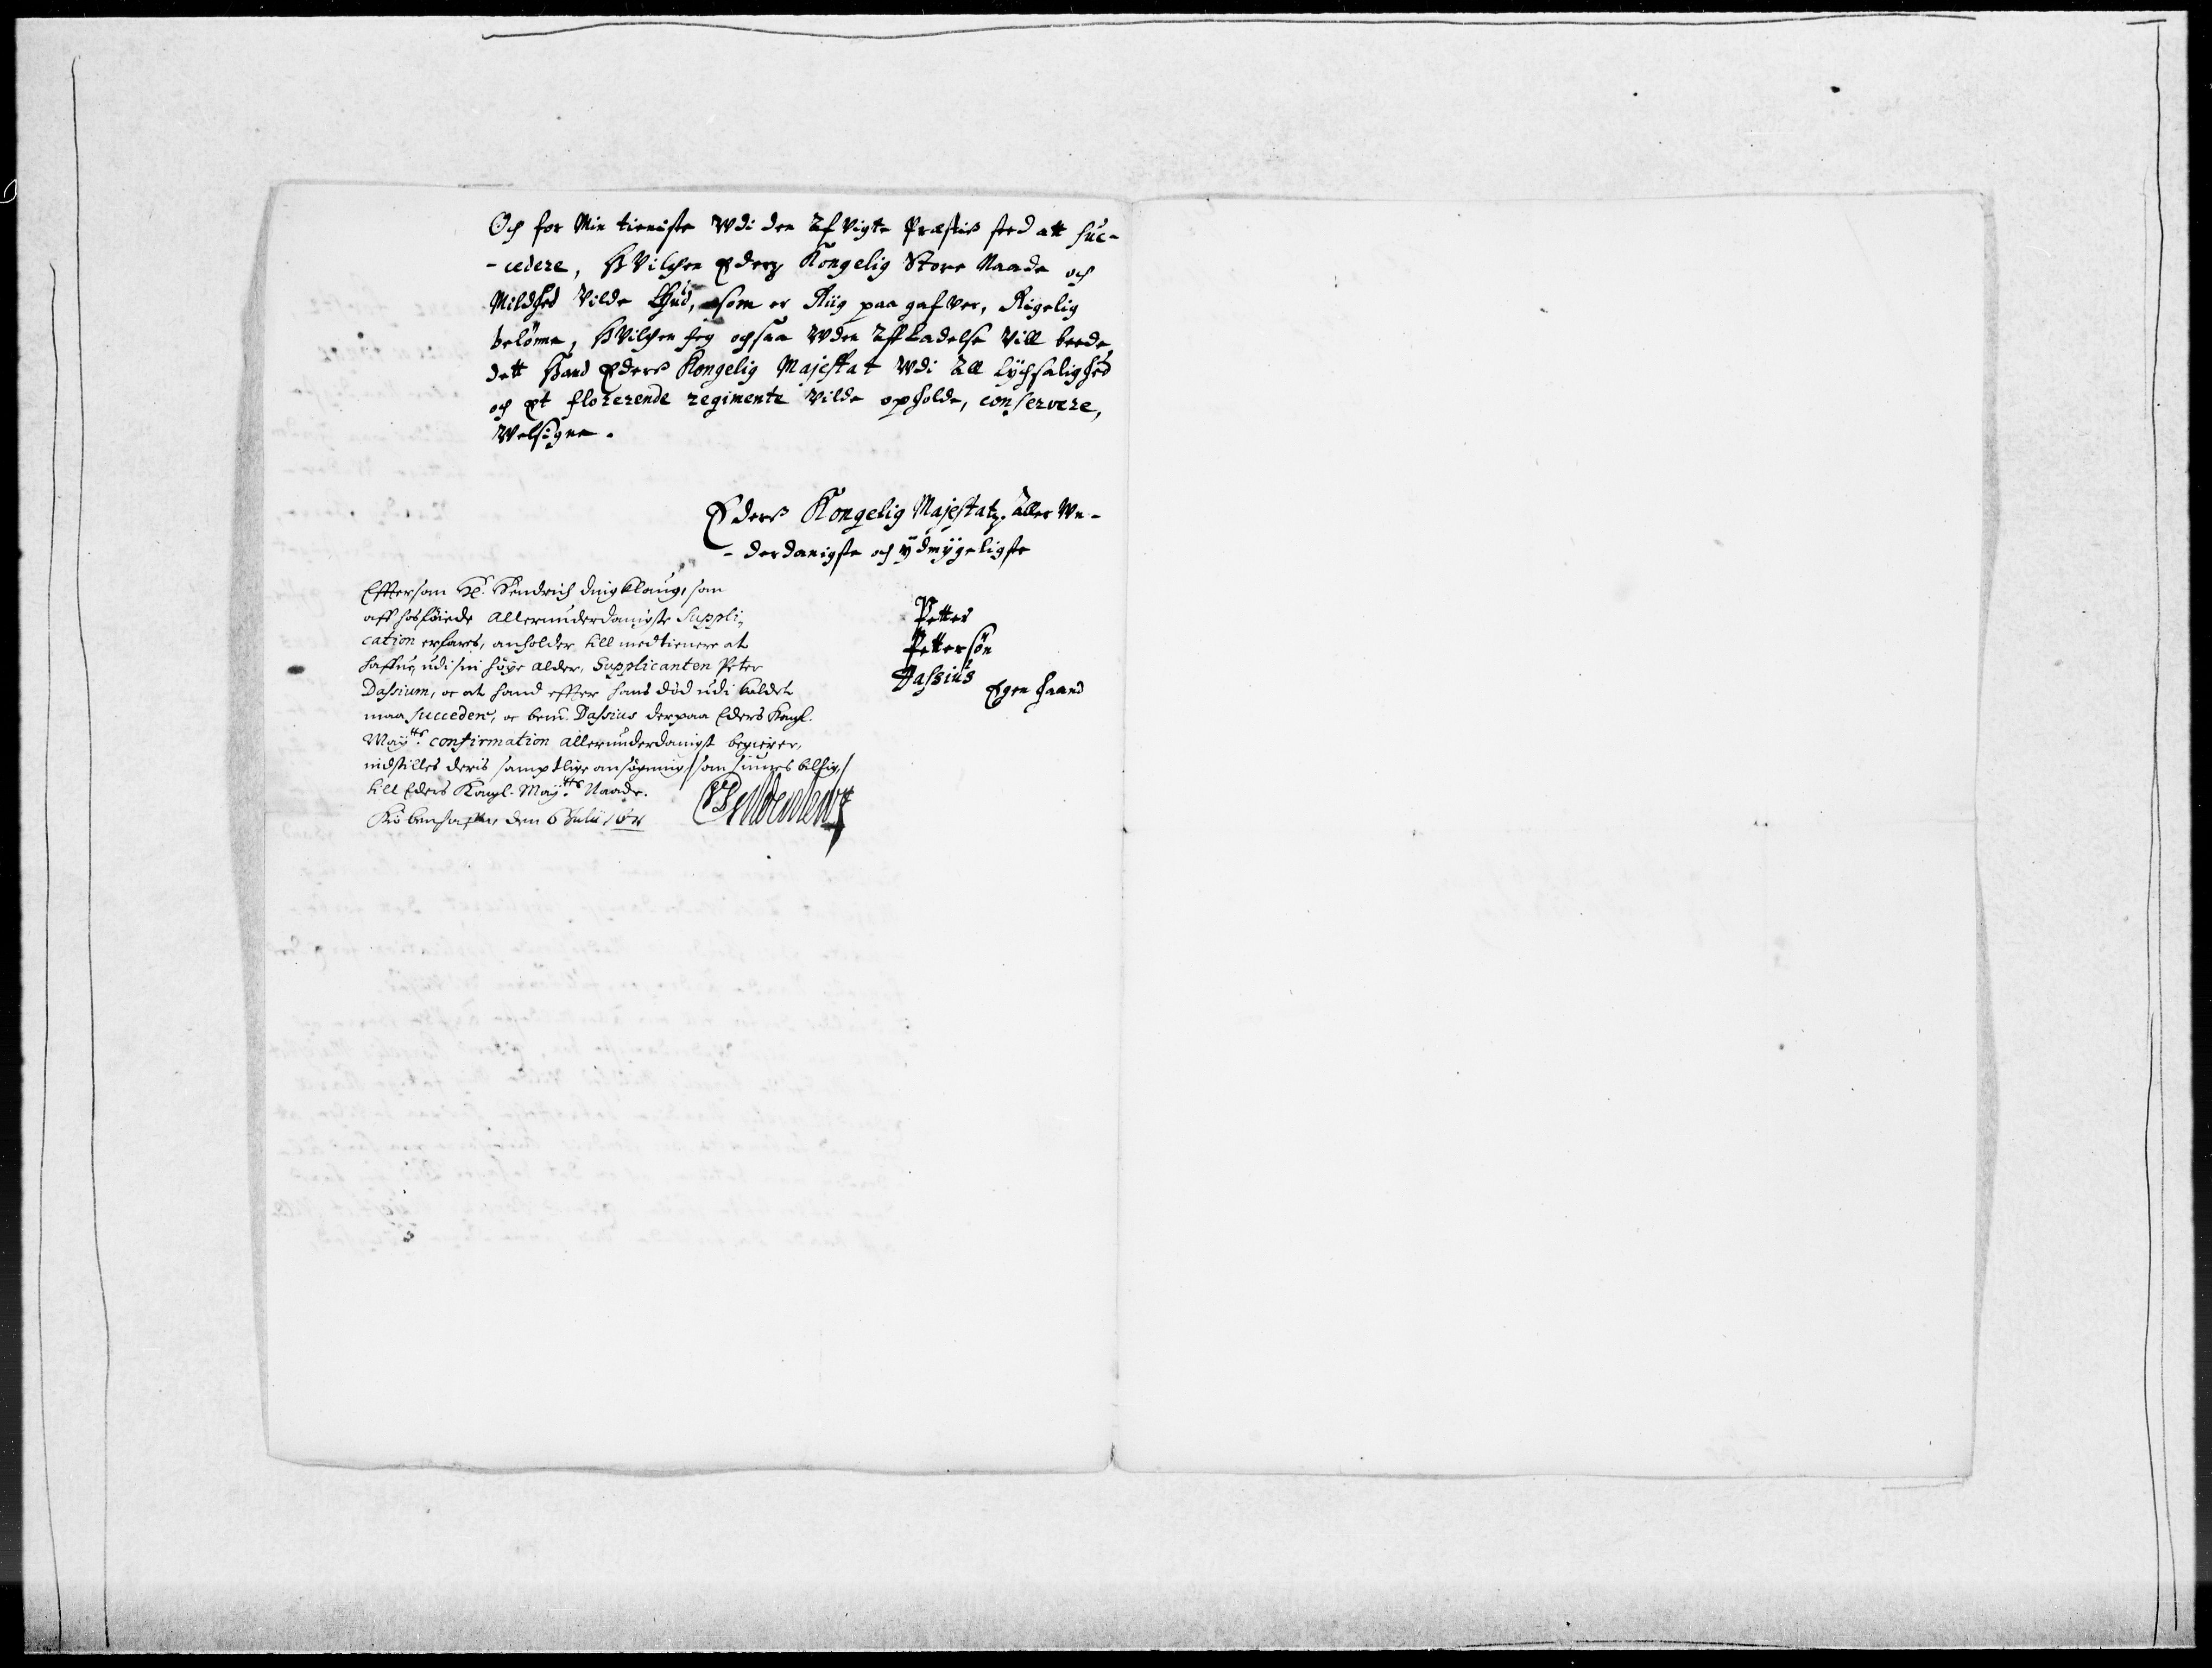 Och for Min tieniste Wdi den Afvigte Præstis sted att suc-
-cedere, HVilchen Eders Kongelig Store Naade och
Mildhed Vilde Ghud, som er Riig paa gafver, Rigelig
belönne, HVilchen Jeg ochsaa Wden Affladelse Vill beede,
dett Hand Eders Kongelig Majestat Wdi All Lychsalighed
och Et florerende regimente Vilde opholde, conservere,
Welsigne.
Eders Kongelig Majestatz. Aller Wn-
-derdanigste och ydmygeligste
Petter
Pettersøn
Dassius
Egen Haand
Efftersom Hr. Hendrich som
aff hosföiede allerunderdanigste Suppli-
cation erfares, anholder till medtienere at
haffue, udi sin höye alder, Supplicanten Peter
Dassium, oc at hand effter hans död udi kaldet
maa succedere, oc bem. Dassius derpaa Eders Kongl.
Maytts. confirmation allerunderdanigst begierer,
indstilles deris samptlige ansögning som siunes billig,
till Eders Kongl. Maytts. Naade.
Kiöbenhaffn, den 6 Julii